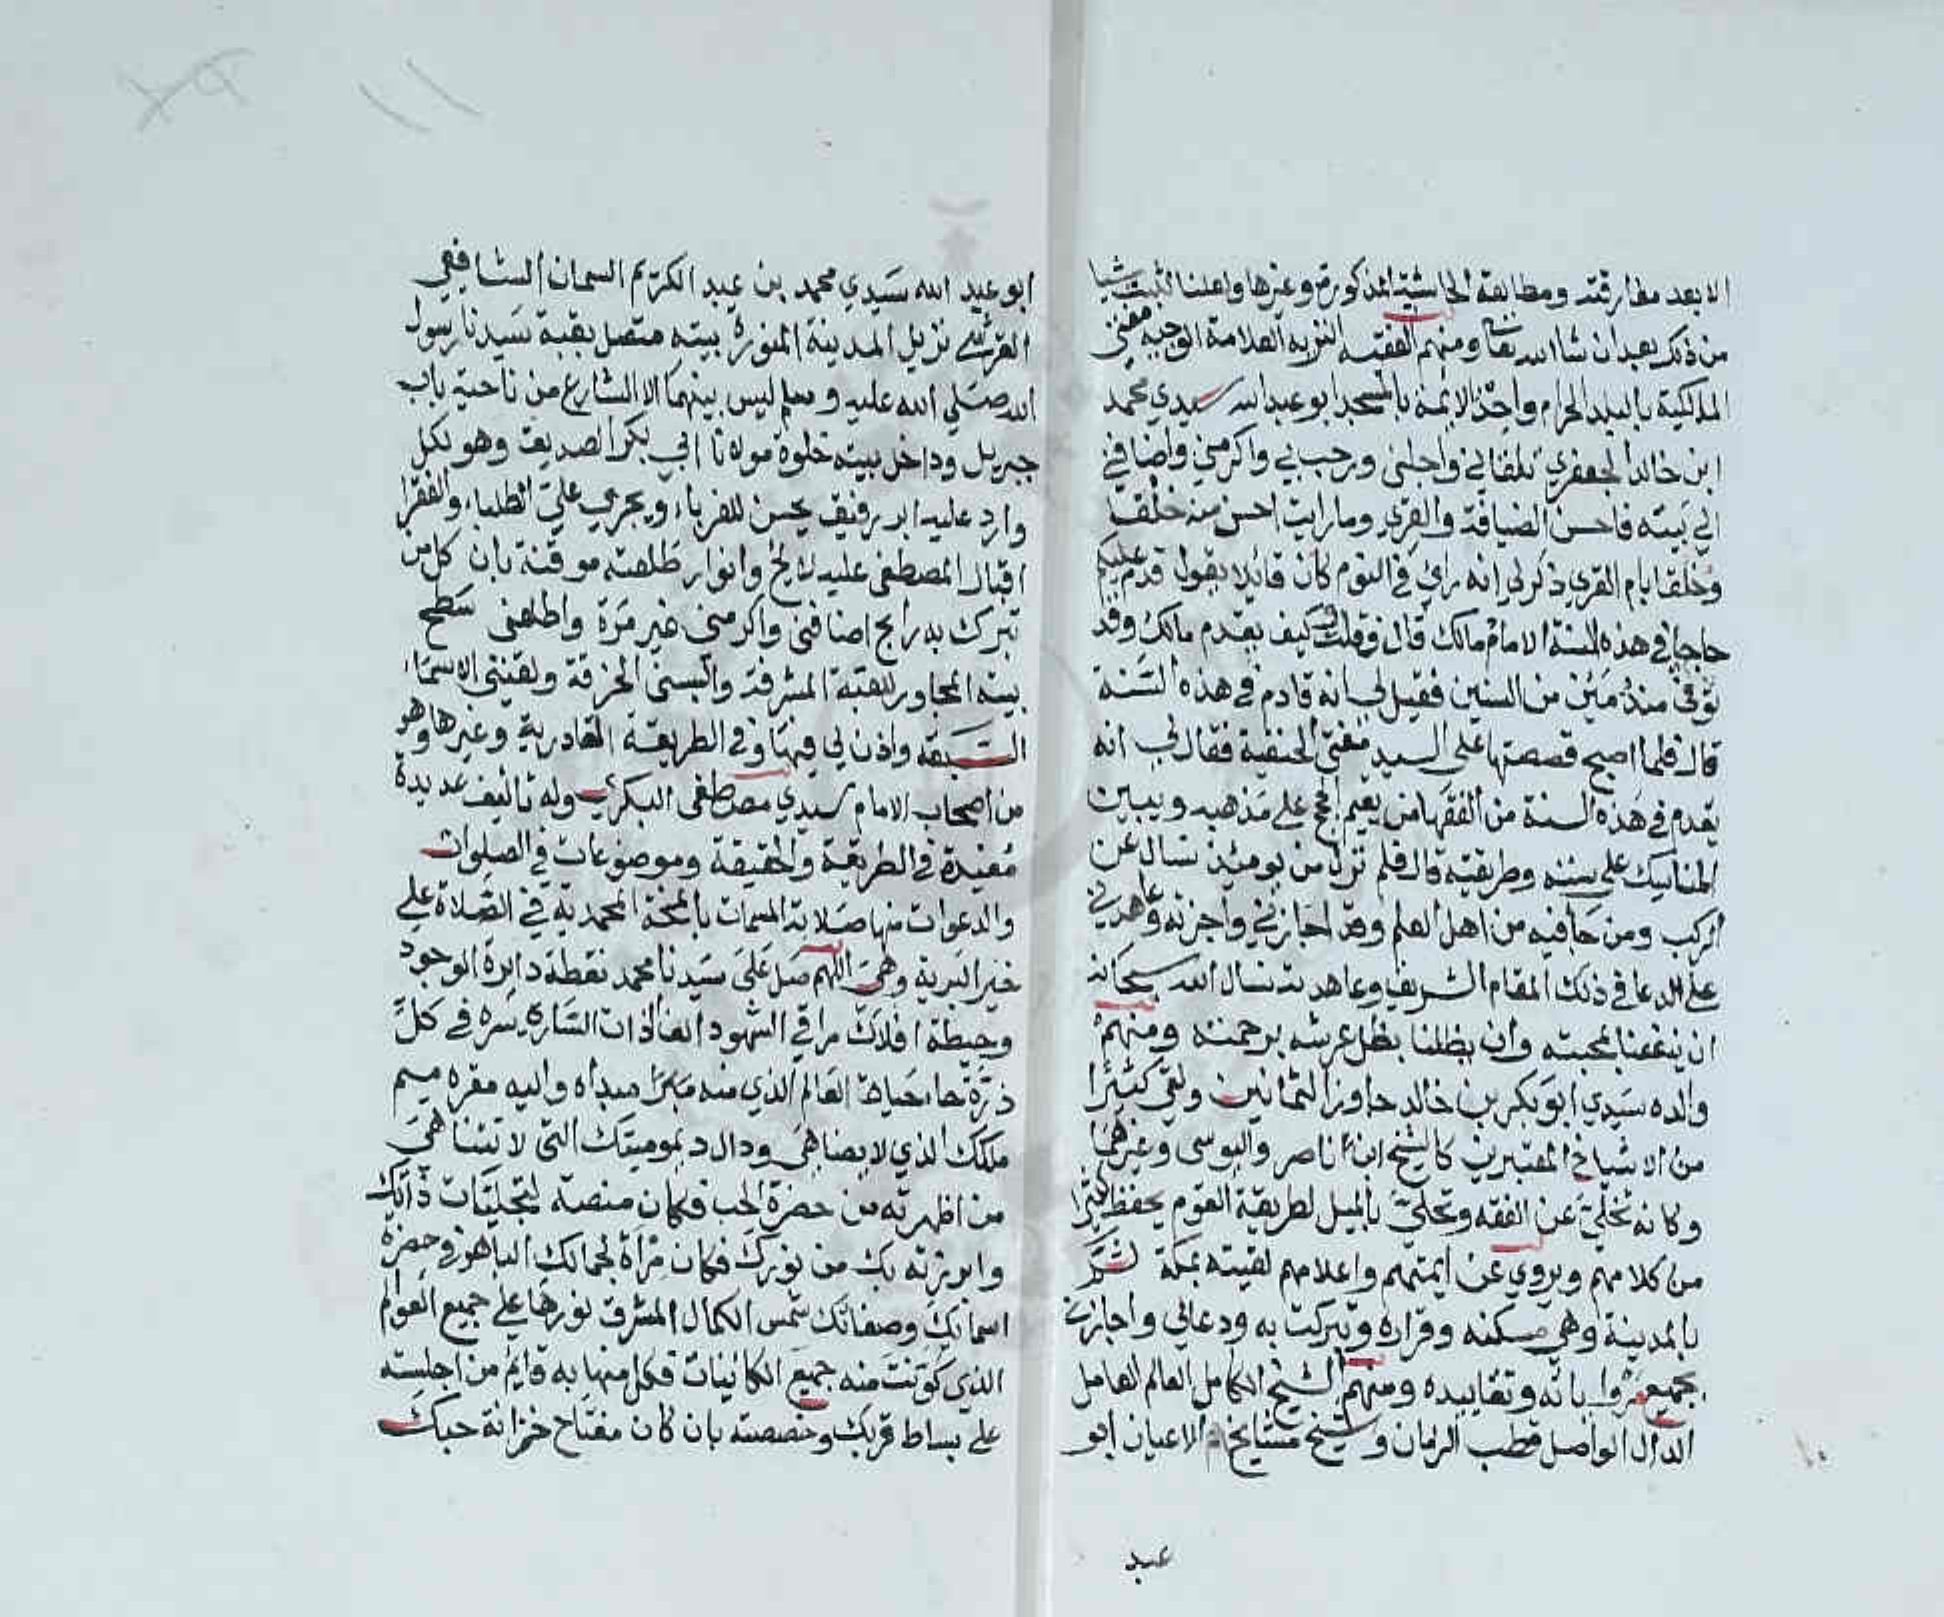 الا بعد مفارقته ومطالعة الحاشية المذكورة وغيرها ولعلنا نثبت شيا
من ذلك بعد ان شا الله تعا ومنهم الفقيه النزيه العلامة الوجيه مفتي
المالكية بالبلد الحرام واحد الائمة بالمسجد ابو عبد الله سيدي محمد
ابن خالد الجعفري تلقاني واجلني ورحب بي واكرمني واضافني
الي بيته فاحسن الضيافة والقري وما رايت احسن منه خلقا
وخلقا بام القري ذكر لي انه راي في النوم كان قائلا يقول قدم عليكم
حاجا في هذه السنة الامام مالك قال فقلت وكيف يقدم مالك وقد
توفي منذ مئين من السنين فقيل لي انه قادم في هذه السنة
قال فلما اصبح قصصتها على السيد مفتي الحنفية فقال لي انه
يقدم في هذه السنة من الفقها من يقيم الحج علي مذهبه ويبين
المناسك علي سننه وطريقته قال فلم نزل من يومئذ نسال عن
الركب ومن جا فيه من اهل العلم وقد اجازني واجزته وعاهدني
علي الدعا في ذلك المقام الشريف وعاهدته نسال الله سبحانه
ان ينفعنا بمحبته وان يظلنا بظل عرشه برحمته ومنهم
والده سيدي ابو بكر بن خالد جاوز الثمانين ولقي كثيرا
من الاشياخ المعتبرين كالشيخ ابن ناصر واليوسي وغيرهما
وكانه تخلي عن الفقه وتحلي بالميل لطريقة القوم يحفظ كثيرا
من كلامهم ويروي عن ايمتهم واعلامهم لقيته بمكة ثم
بالمدينة وهي مسكنه وقراره وتبركت به ودعالي واجازني
بجميع مروياته وتقاييده ومنهم الشيخ الكامل العالم العامل
الدال الواصل قطب الزمان وشيخ مشايخ الاعيان ابو
عبد
ابو عبد الله سيدي محمد بن عبد الكريم السمان الشافعي
القرشي نزيل المدينة المنورة بيته متصل بقبة سيدنا رسول
الله صلي الله عليه وسلم ليس بينهما الا الشارع من ناحية باب
جبريل وداخل بيته خلوة مولانا ابي بكر الصديق وهو بكل
وارد عليه ابر رفيق يحسن للغرباء ويجري علي الطلباء والفقرا
اقبال المصطفى عليه لايح وانوار طلعته موقنة بان كل من
تبرك به رابح اضافني واكرمني غير مرة واطلعني سطح
بيته المجاور للقبة المشرفة والبسني الخرقة ولقنني الاسماء
السبعة واذن لي فيها وفي الطريقة القادرية وغيرها وهو
من اصحاب الامام سيدي مصطفى البكري وله تاليف عديدة
مفيدة في الطريقة والحقيقة وموضوعات في الصلوات
والدعوات منها صلاته المسمات بالمنحة المحمدية في الصلاة علي
خير البرية وهي اللهم صل على سيدنا محمد نقطة دايرة الوجود
وحيطة افلاك مراقي الشهود الف الذات الساري سره في كل
ذرة حاء حياة العالم الذي منه مبدأه واليه مقره ميم
ملكك الذي لا يضاهى ودال ديموميتك التي لا تتناهى
من اظهرته من حضرة الحب فكان منصة لتجليات ذاتك
وابرزته بك من نورك فكان مرآة لجمالك الباهر في حضرة
اسمائك وصفاتك شمس الكمال المشرق نورها علي جميع العوالم
الذي كونت منه جميع الكائنات فكل منها به قايم من اجلسته
علي بساط قربك وخصصته بان كان مفتاح خزانة حبك